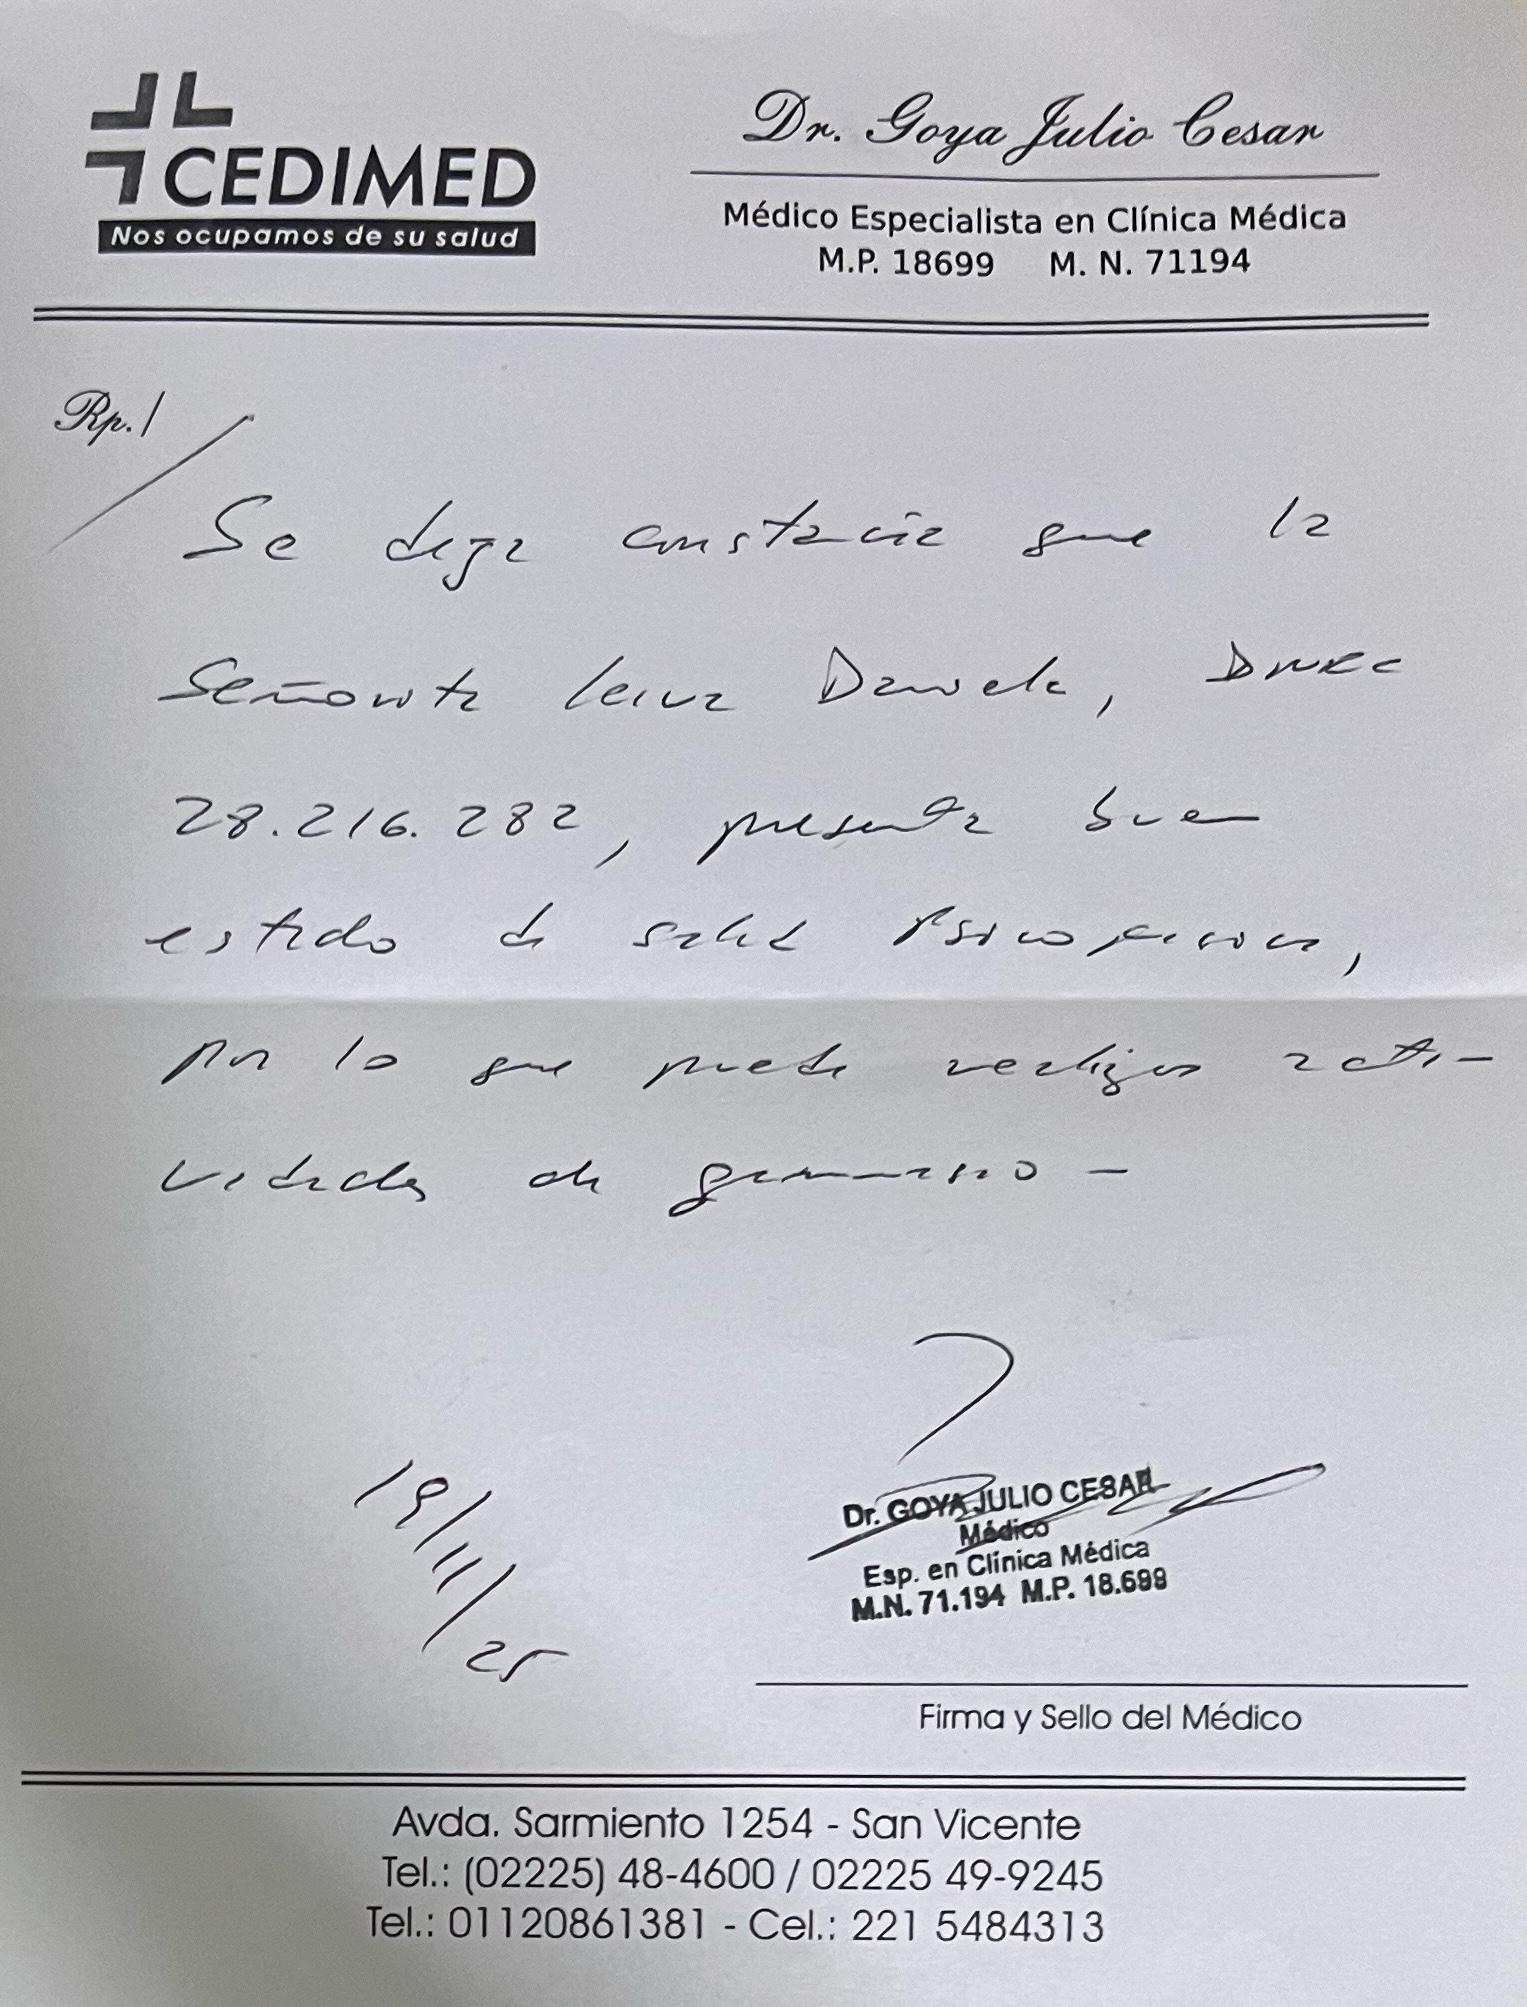 CEDIMED
Nos ocupamos de su salud
Dr. Goya Julio Cesar
Médico Especialista en Clínica Médica
M.P. 18699 M. N. 71194
Rp./
Se deja constancia que la
Señorita Leiva Daniela, DNI
28.216.282, presenta buen
estado de salud Psicofísica,
por lo que puede realizar acti-
vidades de gimnasio -
19/11/25
Dr. GOYA JULIO CESAR
Médico
Esp. en Clínica Médica
M.N. 71.194 M.P. 18.699
Firma y Sello del Médico
Avda. Sarmiento 1254 - San Vicente
Tel.: (02225) 48-4600 / 02225 49-9245
Tel.: 01120861381 - Cel.: 221 5484313